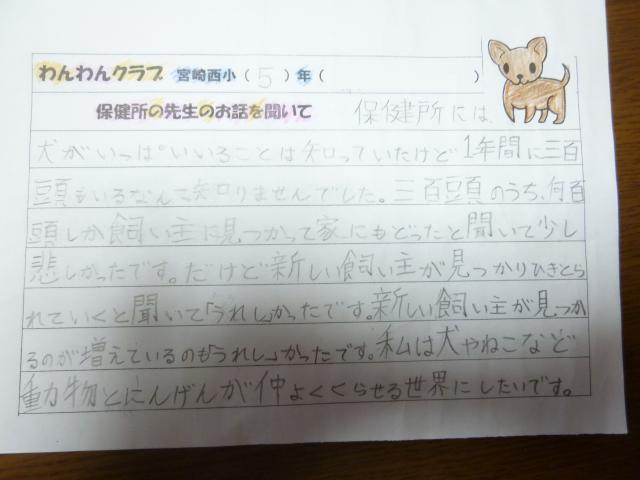 わんわんクラブ 宮崎西小（5）年（ ）
保健所の先生のお話を聞いて 保健所には、
犬がいっぱいいることは知っていたけど1年間に三百
頭もいるなんて知りませんでした。三百頭のうち、何百
頭しか飼い主に見つかって家にもどったと聞いて少し
悲しかったです。だけど新しい飼い主が見つかりひきとら
れていくと聞いて「うれし」かったです。新しい飼い主が見つか
るのが増えているのも「うれし」かったです。私は犬やねこなど
動物とにんげんが仲よくくらせる世界にしたいです。